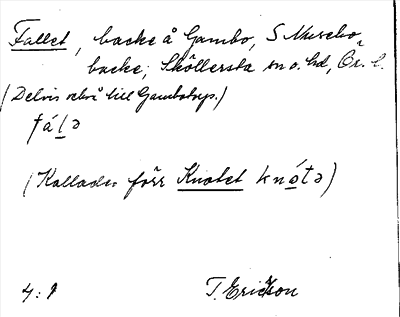 Fallet, backe å Gambo, S Mursbo
backe, Sköllersta sn o. hd, Ör. l.
(Delvis till Gambotorp.)
fálə
(Kallades förr Knotet knótə)
4:1 T. Ericson